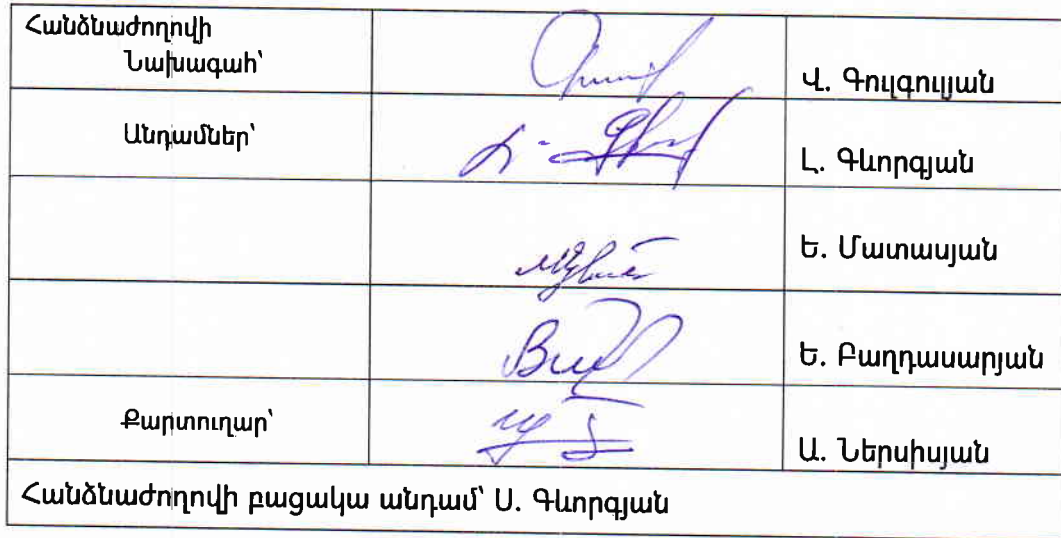 Հանձնաժողովի
Նախագահ՝
Վ. Գուլգուլյան
Անդամներ՝
Լ. Գևորգյան
Ե. Մատասյան
Ե. Բաղդասարյան
Քարտուղար՝
Ա. Ներսիսյան
Հանձնաժողովի բացակա անդամ՝ Ս. Գևորգյան